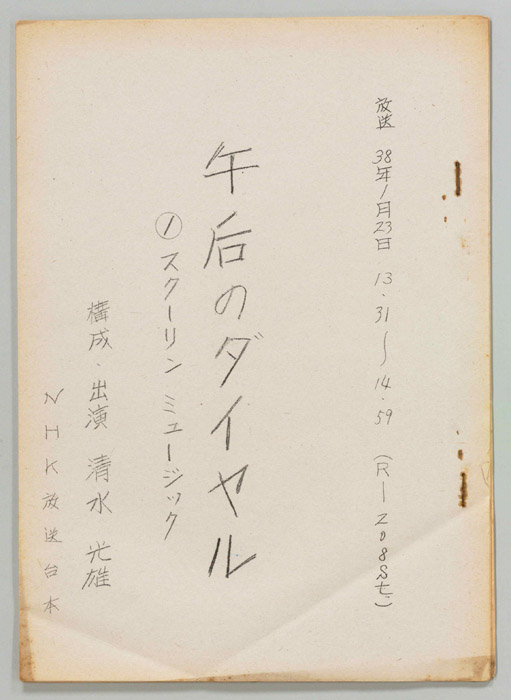 放送 38年1月23日 13.31〜14.59 (R-208St.)
午后のダイヤル
①スクーリン ミュージック
構成・出演 清水 光雄
NHK放送台本